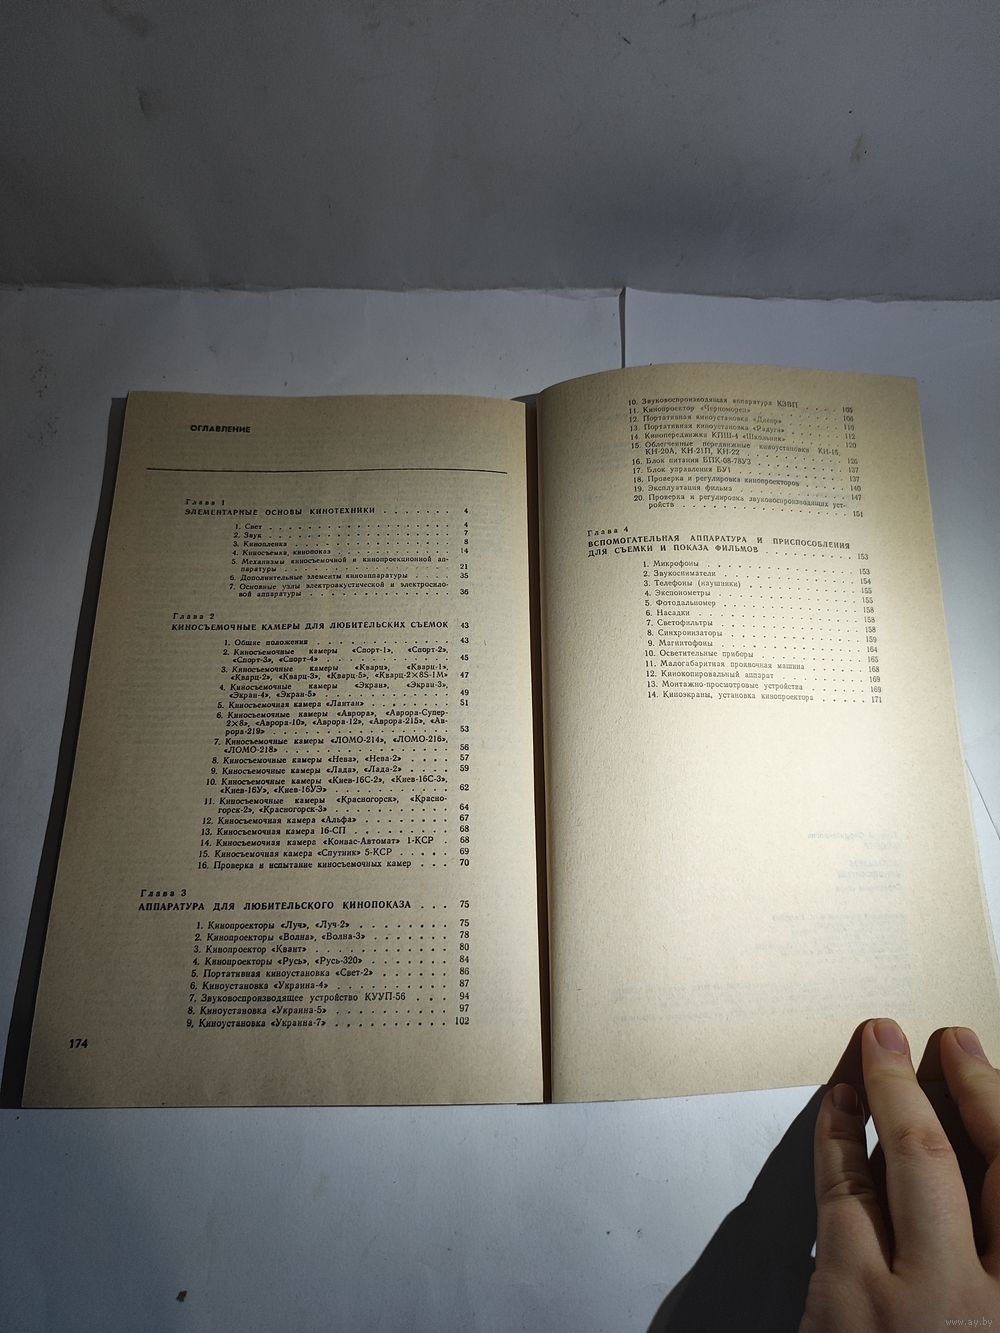 ОГЛАВЛЕНИЕ
Глава 1
ЭЛЕМЕНТАРНЫЕ ОСНОВЫ КИНОТЕХНИКИ . . . . . . . 4
1. Свет . . . . . . . . . . . . . . . . 4
2. Звук . . . . . . . . . . . . . . . . 7
3. Кинопленка . . . . . . . . . . . . . . 8
4. Киносъемка, кинопоказ . . . . . . . . . . 14
5. Механизмы киносъемочной и кинопроекционной ап-
паратуры . . . . . . . . . . . . . . . 21
6. Дополнительные элементы киноаппаратуры . . . . 35
7. Основные узлы электроакустической и электросило-
вой аппаратуры . . . . . . . . . . . . . 36
Глава 2
КИНОСЪЕМОЧНЫЕ КАМЕРЫ ДЛЯ ЛЮБИТЕЛЬСКИХ СЪЕМОК 43
1. Общие положения . . . . . . . . . . . . 43
2. Киносъемочные камеры «Спорт-1», «Спорт-2»,
«Спорт-3», «Спорт-4» . . . . . . . . . . . 45
3. Киносъемочные камеры «Кварц», «Кварц-1»,
«Кварц-2», «Кварц-3», «Кварц-5», «Кварц-2×8S-1М» 47
4. Киносъемочные камеры «Экран», «Экран-3»,
«Экран-4», «Экран-5» . . . . . . . . . . . 49
5. Киносъемочная камера «Лантан» . . . . . . . 51
6. Киносъемочные камеры «Аврора», «Аврора-Супер-
2×8», «Аврора-10», «Аврора-12», «Аврора-215», «Ав-
рора-219» . . . . . . . . . . . . . . . 53
7. Киносъемочные камеры «ЛОМО-214», «ЛОМО-216»,
«ЛОМО-218» . . . . . . . . . . . . . . 56
8. Киносъемочные камеры «Нева», «Нева-2» . . . . 57
9. Киносъемочные камеры «Лада», «Лада-2» . . . . 59
10. Киносъемочные камеры «Киев-16С-2», «Киев-16С-3»,
«Киев-16У», «Киев-16УЭ» . . . . . . . . . . 62
11. Киносъемочные камеры «Красногорск», «Красно-
горск-2», «Красногорск-3» . . . . . . . . . . 64
12. Киносъемочная камера «Альфа» . . . . . . . 67
13. Киносъемочная камера 16-СП . . . . . . . . 68
14. Киносъемочная камера «Конвас-Автомат» 1-КСР . 68
15. Киносъемочная камера «Спутник» 5-КСР . . . . 69
16. Проверка и испытание киносъемочных камер . . . 70
Глава 3
АППАРАТУРА ДЛЯ ЛЮБИТЕЛЬСКОГО КИНОПОКАЗА . . . 75
1. Кинопроекторы «Луч», «Луч-2» . . . . . . . . 75
2. Кинопроекторы «Волна», «Волна-3» . . . . . . . 78
3. Кинопроектор «Квант» . . . . . . . . . . . 80
4. Кинопроекторы «Русь», «Русь-320» . . . . . . . 84
5. Портативная киноустановка «Свет-2» . . . . . . 86
6. Киноустановка «Украина-4» . . . . . . . . . 87
7. Звуковоспроизводящее устройство КУУП-56 . . . 94
8. Киноустановка «Украина-5» . . . . . . . . . 97
9. Киноустановка «Украина-7» . . . . . . . . . 102
174
10. Звуковоспроизводящая аппаратура КЗВП . . . . 105
11. Кинопроектор «Черноморец» . . . . . . . . 106
12. Портативная киноустановка «Днепр» . . . . . 110
13. Портативная киноустановка «Радуга» . . . . . 112
14. Кинопередвижка КПШ-4 «Школьник» . . . . . 120
15. Облегченные передвижные киноустановки КН-15,
КН-20А, КН-21П, КН-22 . . . . . . . . . . 126
16. Блок питания БПК-08-78У3 . . . . . . . . . 137
17. Блок управления БУ1 . . . . . . . . . . . 137
18. Проверка и регулировка кинопроекторов . . . . 140
19. Эксплуатация фильма . . . . . . . . . . . 147
20. Проверка и регулировка звуковоспроизводящих уст-
ройств . . . . . . . . . . . . . . . . 151
Глава 4
ВСПОМОГАТЕЛЬНАЯ АППАРАТУРА И ПРИСПОСОБЛЕНИЯ
ДЛЯ СЪЕМКИ И ПОКАЗА ФИЛЬМОВ . . . . . . . . 153
1. Микрофоны . . . . . . . . . . . . . . 153
2. Звукосниматели . . . . . . . . . . . . . 154
3. Телефоны (наушники) . . . . . . . . . . . 155
4. Экспонометры . . . . . . . . . . . . . 155
5. Фотодальномер . . . . . . . . . . . . . 158
6. Насадки . . . . . . . . . . . . . . . 158
7. Светофильтры . . . . . . . . . . . . . 158
8. Синхронизаторы . . . . . . . . . . . . . 159
9. Магнитофоны . . . . . . . . . . . . . . 164
10. Осветительные приборы . . . . . . . . . . 165
11. Малогабаритная проявочная машина . . . . . . 168
12. Кинокопировальный аппарат . . . . . . . . 169
13. Монтажно-просмотровые устройства . . . . . . 169
14. Киноэкраны, установка кинопроектора . . . . . 171
www.ay.by